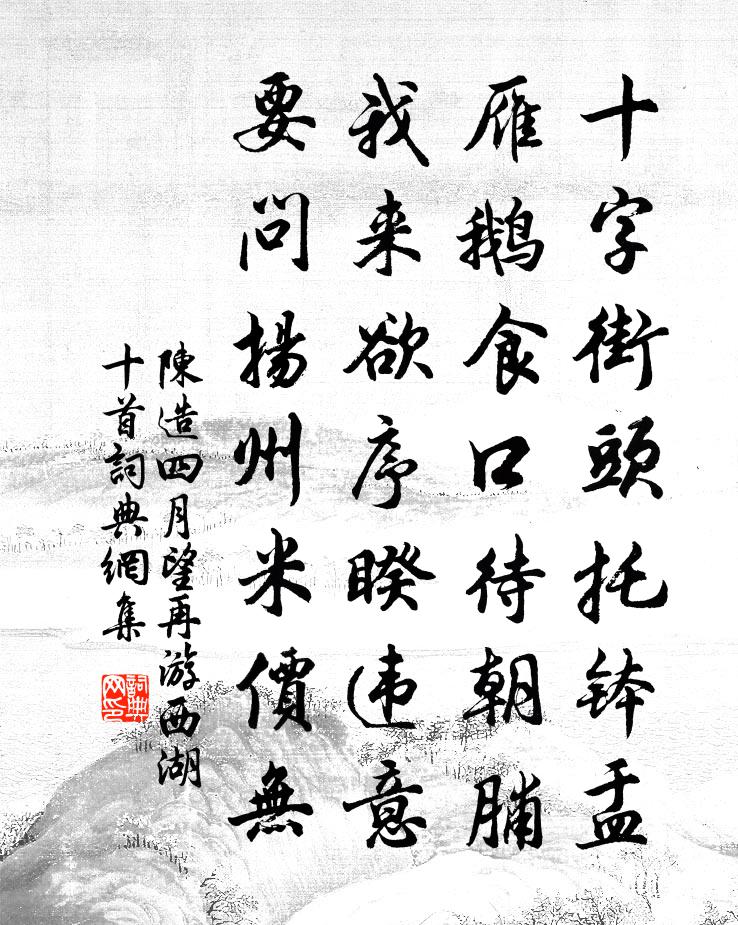 十字街頭托钵盂
雁鹅食口待朝脯
我来欲序睽违意
要問揚州米價無
陳造四月望再游西湖
十首詞典網集
詞典
网印